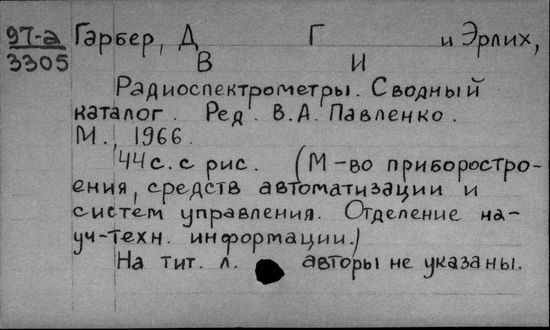 97-а Гарбер, Д Г и Эрлих,
3305 В И
Радиоспектрометры. Сводный
каталог. Ред. В.А. Павленко.
М., 1966.
44 с. с рис. (М-во приборостро-
ения, средств автоматизации и
систем управления. Отделение на-
уч-техн. информации.)
На тит. л. авторы не указаны.